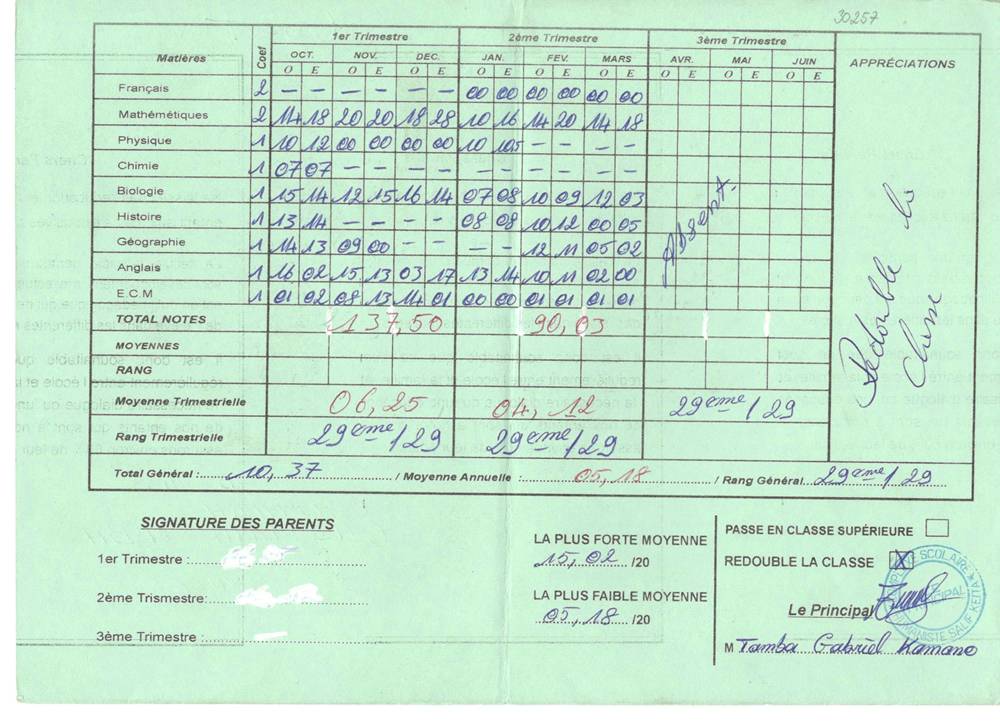 30257
1er Trimestre 2ème Trimestre 3ème Trimestre
Matières Coef OCT. NOV. DEC. JAN. FEV. MARS AVR. MAI JUIN APPRÉCIATIONS
O E O E O E O E O E O E O E O E O E
Français 2 – – – – – – 00 00 00 00 00 00
Mathémétiques 2 14 18 20 20 18 28 10 16 14 20 14 18
Physique 1 10 12 00 00 00 00 10 105 – – – –
Chimie 1 07 07 – – – –
Biologie 1 15 14 12 15 16 14 07 08 10 09 12 03
Histoire 1 13 14 – – – – 08 08 10 12 00 05
Géographie 1 14 13 09 00 – – – – 12 11 05 02
Anglais 1 16 02 15 13 03 17 13 14 10 11 02 00
E.C.M 1 01 02 08 13 14 01 00 00 01 01 01 01
Absent.
Redouble la
Classe
TOTAL NOTES 137,50 90,03
MOYENNES
RANG
Moyenne Trimestrielle 06,25 04,12 29ème/29
Rang Trimestrielle 29ème/29 29ème/29
Total Général : 10,37 / Moyenne Annuelle : 05,18 / Rang Général 29ème/29
SIGNATURE DES PARENTS
1er Trimestre :
2ème Trismestre:
3ème Trimestre :
LA PLUS FORTE MOYENNE
15,02 /20
LA PLUS FAIBLE MOYENNE
05,18 /20
PASSE EN CLASSE SUPÉRIEURE
REDOUBLE LA CLASSE X
Le Principal
M Tamba Gabriel Kamano